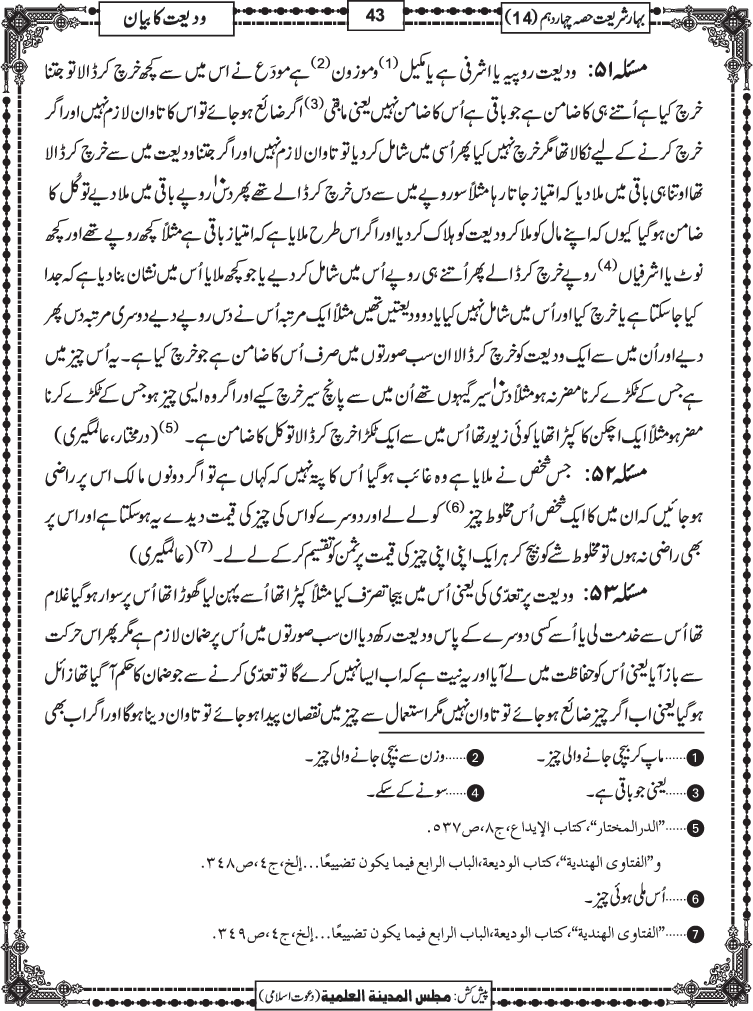 بہارِ شریعت حصہ چہاردہم (14)
43
ودیعت کا بیان
مسئلہ ۵۱: ودیعت روپیہ یا اشرفی ہے یا مکیل (1) وموزون (2) ہے مودَع نے اس میں سے کچھ خرچ کر ڈالا تو جتنا
خرچ کیا ہے اُتنے ہی کا ضامن ہے جو باقی ہے اُس کا ضامن نہیں یعنی مابقی (3) اگر ضائع ہو جائے تو اس کا تاوان لازم نہیں اور اگر
خرچ کرنے کے لیے نکالا تھا مگر خرچ نہیں کیا پھر اُسی میں شامل کر دیا تو تاوان لازم نہیں اور اگر جتنا ودیعت میں سے خرچ کر ڈالا
تھا اوتنا ہی باقی میں ملا دیا کہ امتیاز جاتا رہا مثلاً سو روپے میں سے دس خرچ کر ڈالے تھے پھر دس۱۰ روپے باقی میں ملا دیے تو کُل کا
ضامن ہو گیا کیوں کہ اپنے مال کو ملا کر ودیعت کو ہلاک کر دیا اور اگر اس طرح ملایا ہے کہ امتیاز باقی ہے مثلاً کچھ روپے تھے اور کچھ
نوٹ یا اشرفیاں (4) روپے خرچ کر ڈالے پھر اُتنے ہی روپے اُس میں شامل کر دیے یا جو کچھ ملایا اُس میں نشان بنا دیا ہے کہ جدا
کیا جا سکتا ہے یا خرچ کیا اور اُس میں شامل نہیں کیا یا دو ودیعتیں تھیں مثلاً ایک مرتبہ اُس نے دس روپے دیے دوسری مرتبہ دس پھر
دیے اور اُن میں سے ایک ودیعت کو خرچ کر ڈالا ان سب صورتوں میں صرف اُس کا ضامن ہے جو خرچ کیا ہے۔ یہ اُس چیز میں
ہے جس کے ٹکڑے کرنا مضر نہ ہو مثلاً دس۱۰ سیر گیہوں تھے اُن میں سے پانچ سیر خرچ کیے اور اگر وہ ایسی چیز ہو جس کے ٹکڑے کرنا
مضر ہو مثلاً ایک اچکن کا کپڑا تھا یا کوئی زیور تھا اُس میں سے ایک ٹکڑا خرچ کر ڈالا تو کل کا ضامن ہے۔ (5) (درمختار، عالمگیری)
مسئلہ ۵۲: جس شخص نے ملایا ہے وہ غائب ہو گیا اُس کا پتہ نہیں کہ کہاں ہے تو اگر دونوں مالک اس پر راضی
ہو جائیں کہ ان میں کا ایک شخص اُس مخلوط چیز (6) کو لے لے اور دوسرے کو اس کی چیز کی قیمت دیدے یہ ہو سکتا ہے اور اس پر
بھی راضی نہ ہوں تو مخلوط شے کو بیچ کر ہر ایک اپنی اپنی چیز کی قیمت پر ثمن کو تقسیم کر کے لے لے۔ (7) (عالمگیری)
مسئلہ ۵۳: ودیعت پر تعدّی کی یعنی اُس میں بیجا تصرّف کیا مثلاً کپڑا تھا اُسے پہن لیا گھوڑا تھا اُس پر سوار ہو گیا غلام
تھا اُس سے خدمت لی یا اُسے کسی دوسرے کے پاس ودیعت رکھ دیا ان سب صورتوں میں اُس پر ضمان لازم ہے مگر پھر اس حرکت
سے باز آیا یعنی اُس کو حفاظت میں لے آیا اور یہ نیت ہے کہ اب ایسا نہیں کرے گا تو تعدّی کرنے سے جو ضمان کا حکم آ گیا تھا زائل
ہو گیا یعنی اب اگر چیز ضائع ہو جائے تو تاوان نہیں مگر استعمال سے چیز میں نقصان پیدا ہو جائے تو تاوان دینا ہوگا اور اگر اب بھی
1 ......ماپ کر بیچی جانے والی چیز۔ 2 ......وزن سے بیچی جانے والی چیز۔
3 ......یعنی جو باقی ہے۔ 4 ......سونے کے سکے۔
5 ......”الدرالمختار“، کتاب الإیداع، ج۸، ص۵۳۷.
و”الفتاوی الھندیة“، کتاب الودیعة، الباب الرابع فیما یکون تضییعًا...إلخ، ج٤، ص۳٤۸.
6 ......اُس ملی ہوئی چیز۔
7 ......”الفتاوی الھندیة“، کتاب الودیعة، الباب الرابع فیما یکون تضییعًا...إلخ، ج٤، ص۳٤۹.
پیش کش: مجلس المدینة العلمیة (دعوت اسلامی)